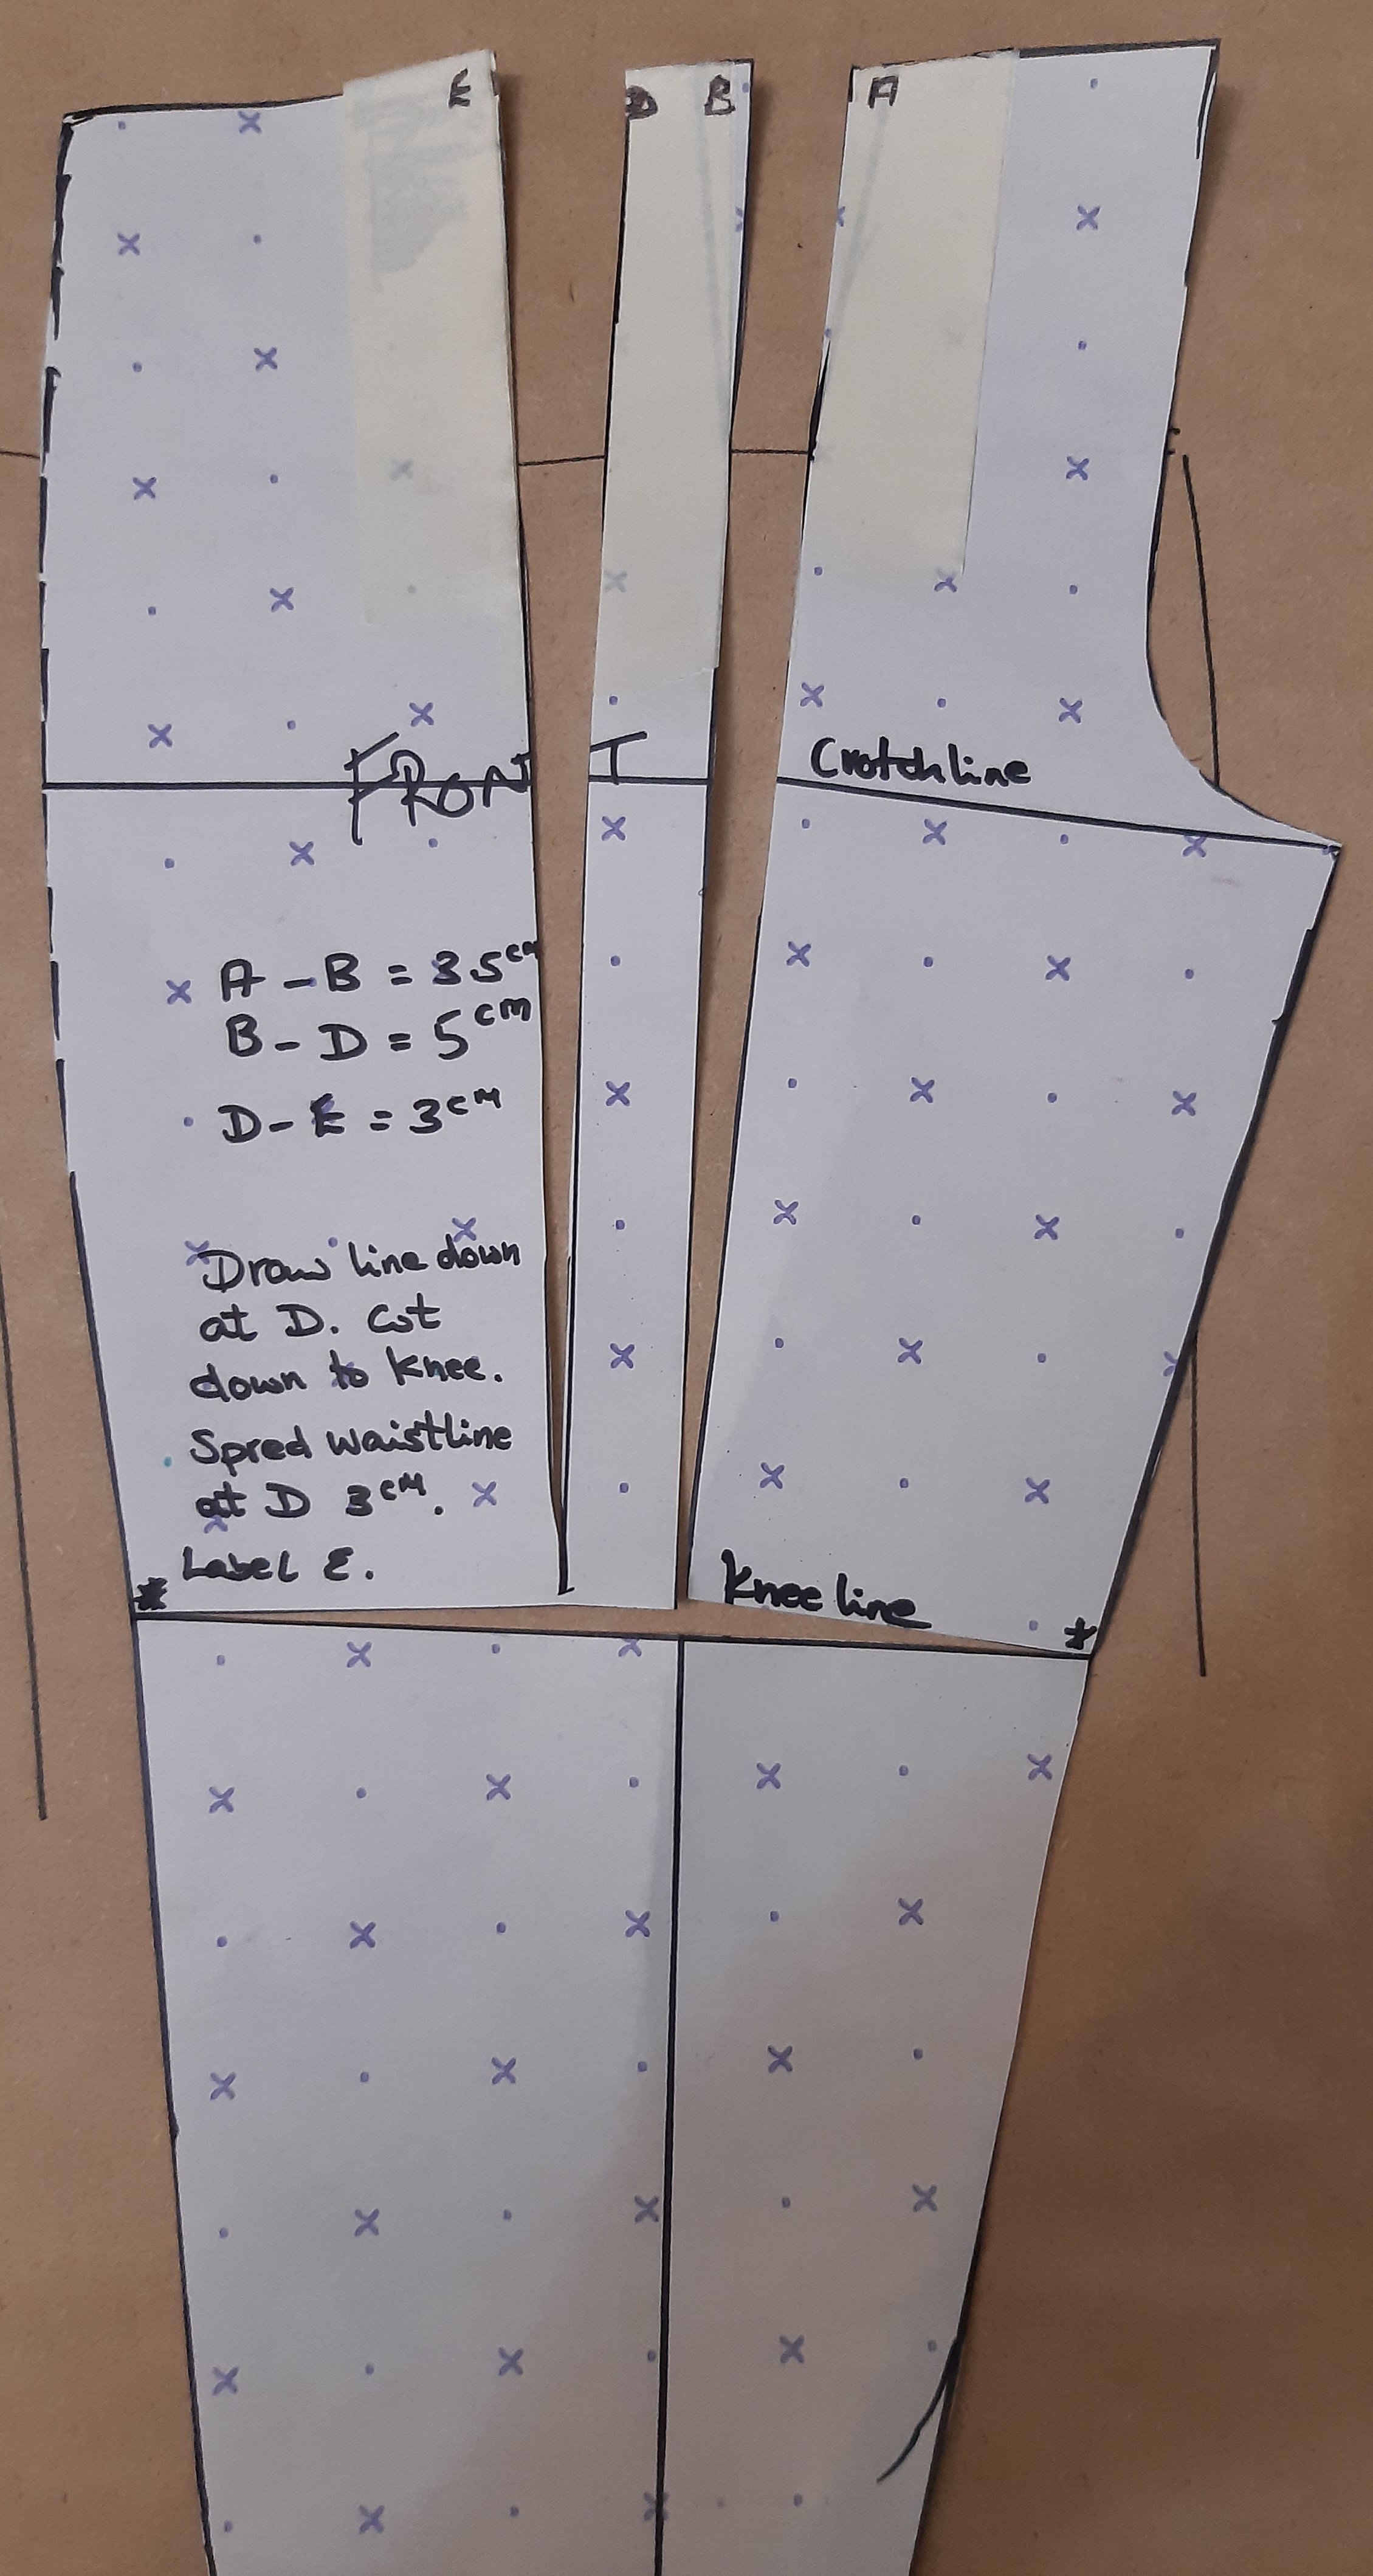 E
D B
A
FRONT
Crotchline
A - B = 3.5cm
B - D = 5cm
D - E = 3cm
Draw line down
at D. Cut
down to knee.
Spred waistline
at D 3cm.
Label E.
*
Knee line
*